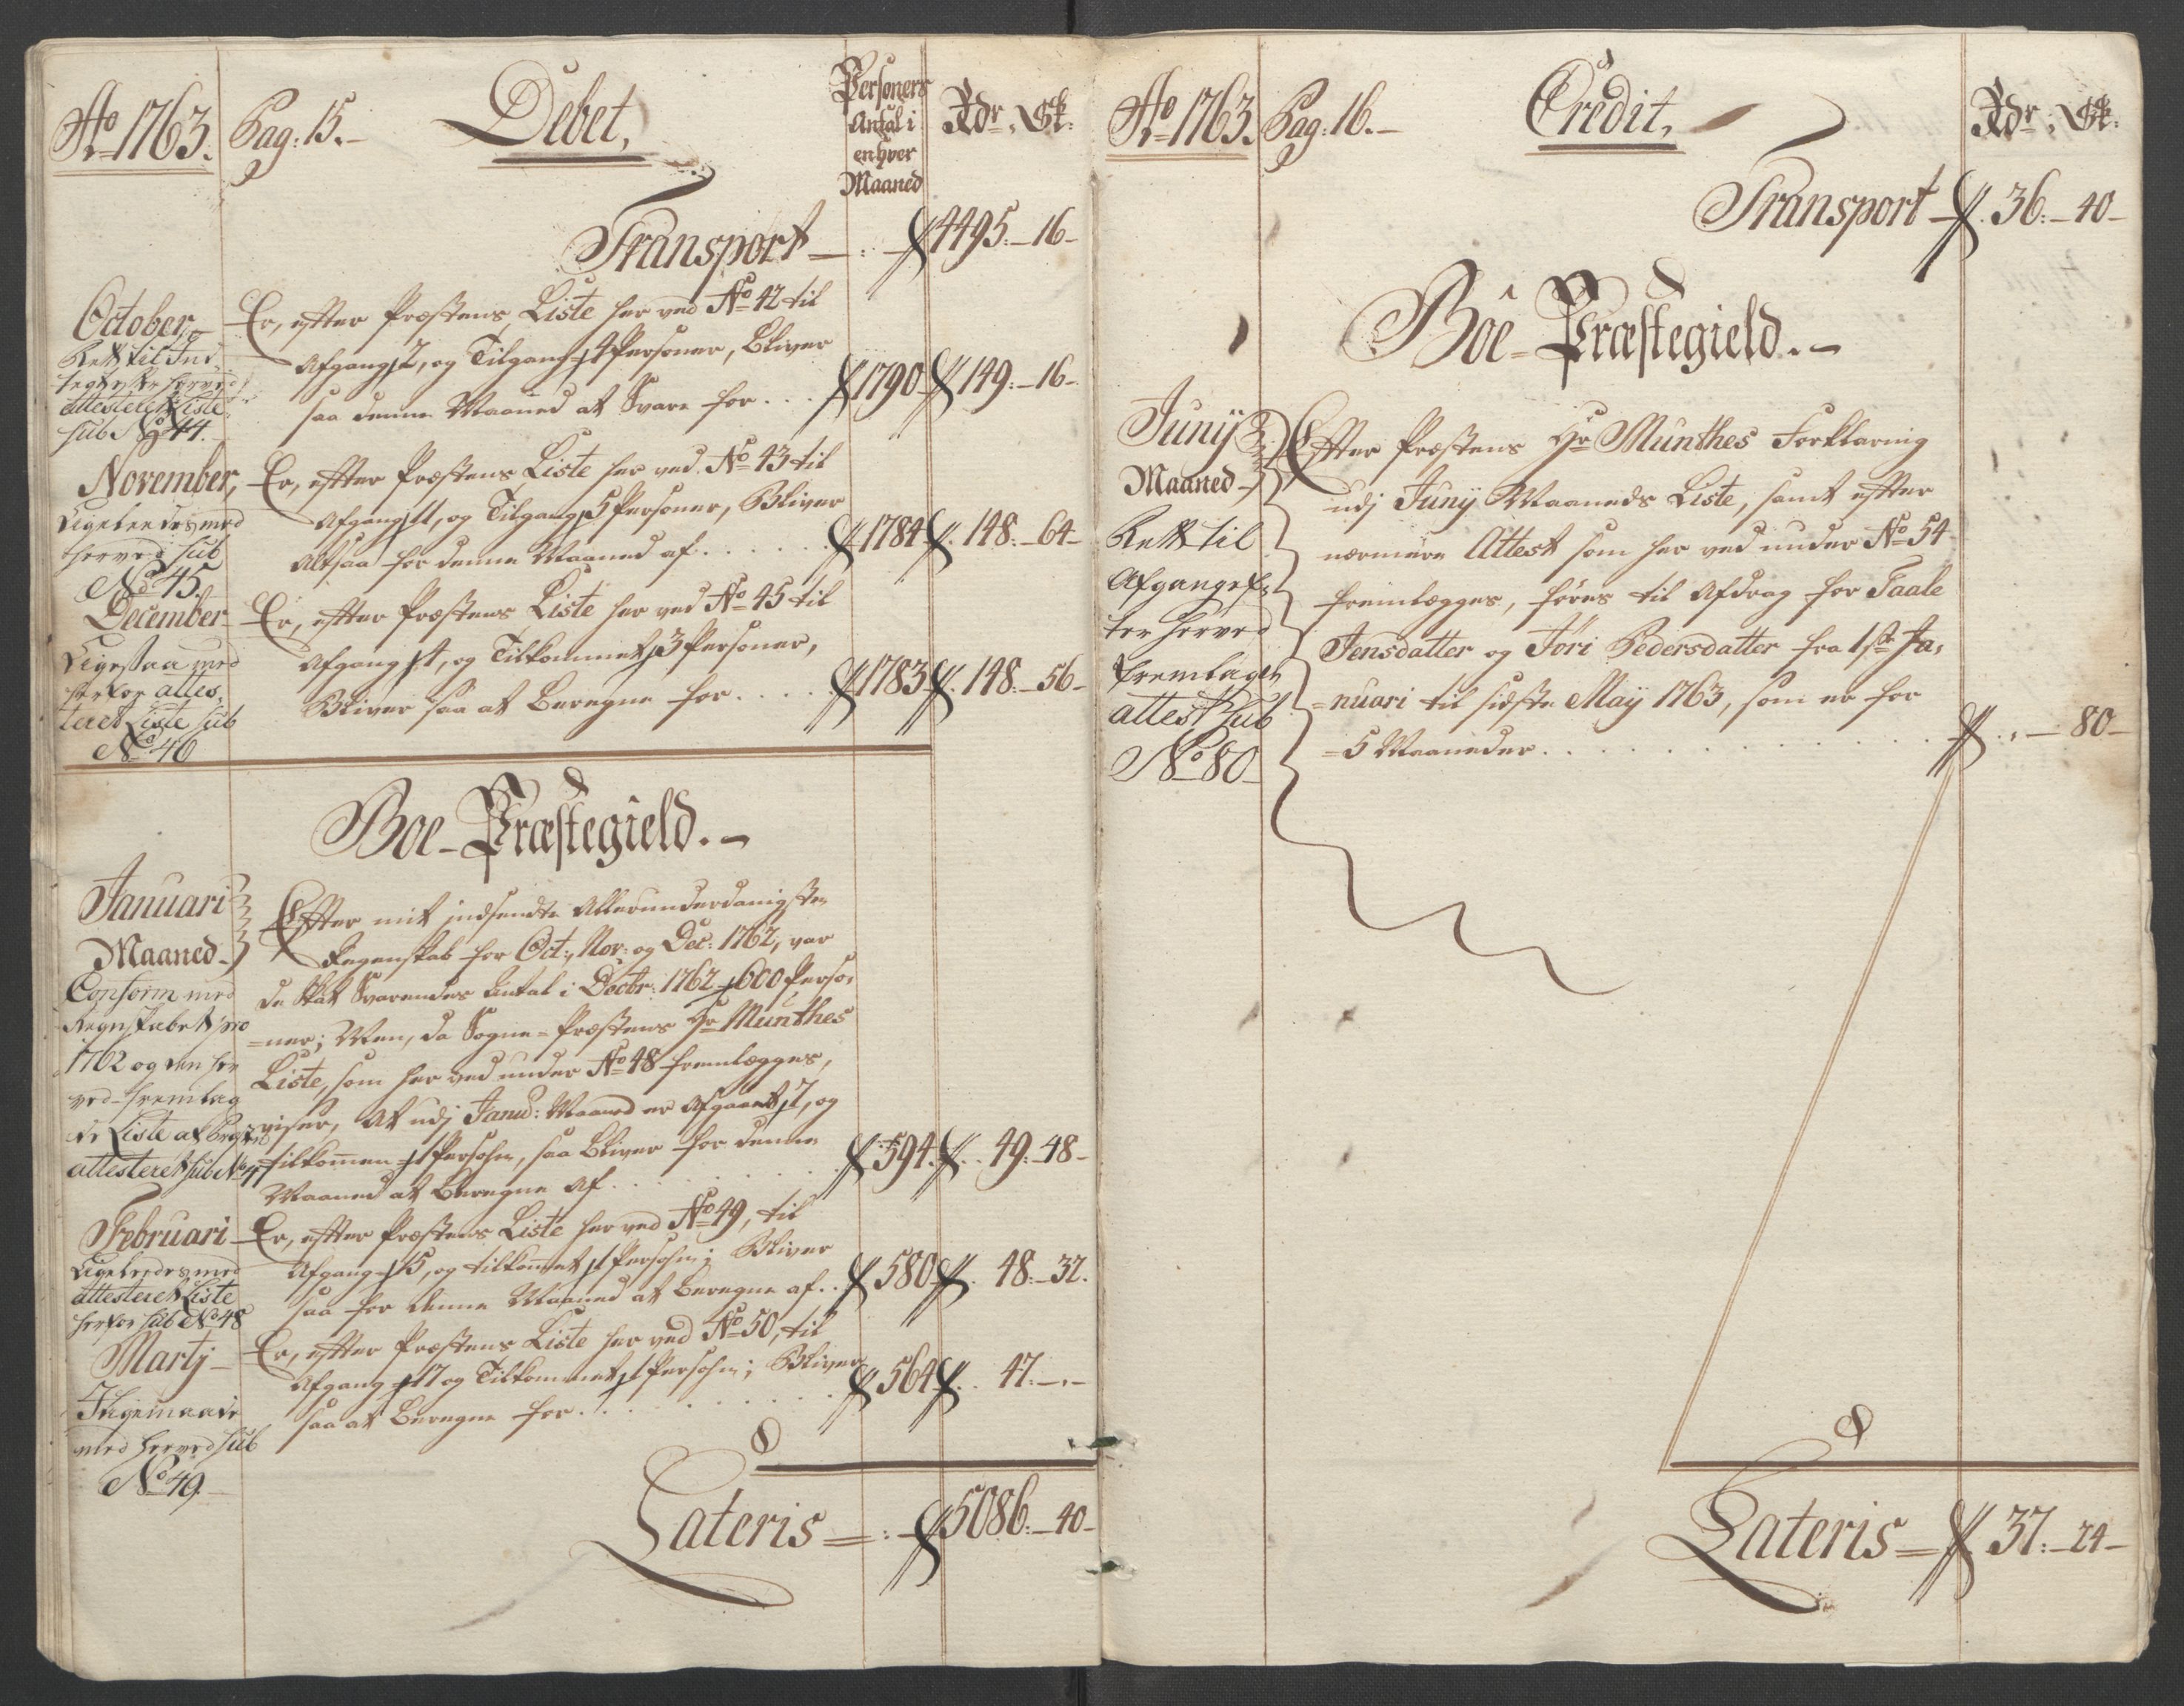 Ao 1763. Pag: 15.- Debet, Personers Antal i enhver Maaned Rdr, Sk:
Transport - 4495.-16-
October, Er, efter Præstens Liste her ved No 42 til
Rett til Ind- Afgang 7, og Tilgang 4 Personer, Bliver
saa denne Maaned at Svare for . . . 1790 149.-16-
attesteret Liste
sub No 44.
November, Er, efter Præstens Liste her ved No 43 til
Ligeledes med Afgang 11, og Tilgang 5 Personer, Bliver
herved sub Altsaa for denne Maaned af . . . . . 1784 148.-64-
No 45.
December Er, efter Præstens Liste her ved No 45 til
Ligesaa med Afgang 4, og Tilkommet 3 Personer,
herfor attes- Bliver saa at Beregne for . . . . 1783 148.-56-
teret Liste sub
No 46
Boe-Præstegield.-
Januari Efter mit indsendte Allerunderdanigste
Maaned- Regenskab for Oct:, Nov: og Dec: 1762, var
Conform med de Skat Svarendes Antal i Decbr: 1762 600 Perso-
Regnskabet pro =ner; Men, da Sogne-Præstens Hr Munthes
1762 og den her Liste, som her ved under No 48 fremlægges,
ved fremlag viser, At udj Janu: Maaned er Afgaaet 7, og
de Liste tilkommen 1 Persohn, saa Bliver for denne
attesteret sub No 47 Maaned at Beregne af . . . . . 594. 49.-48-
Februari Er, efter Præstens Liste her ved No 49, til
Ligeledes med Afgang 15, og tilkommet 1 Persohn; Bliver
attesteret Liste saa for denne Maaned at Beregne af . . 580 48.-32.
herfor sub No 48
Martj- Er, efter Præstens Liste her ved No 50, til
Afgang 17 og Tilkommet 1 Persohn; Bliver
I ligemaade saa at Beregne for . . . . . 564 47.-.-
med herved sub
No 49.
Lateris = 5086.-40-
Ao 1763. Pag: 16.- Credit, Rdr, Sk:
Transport- 36.-40-
Boe-Præstegield.-
Junij Efter Præstens Hr Munthes Forklaring
Maaned- udj Junij Maaneds Liste, samt efter
Rett til nærmere Attest som her ved under No 54
Afgang ef- fremlægges, føres til Afdrag for Taale
ter herved Jensdatter og Jøri Pedersdatter fra 1ste Ja-
fremlagde =nuari til sidste Maij 1763, som er for
attest sub =5 Maaneder . . . . . . . . . . . . -80-
No 80
Lateris = 37.-24-